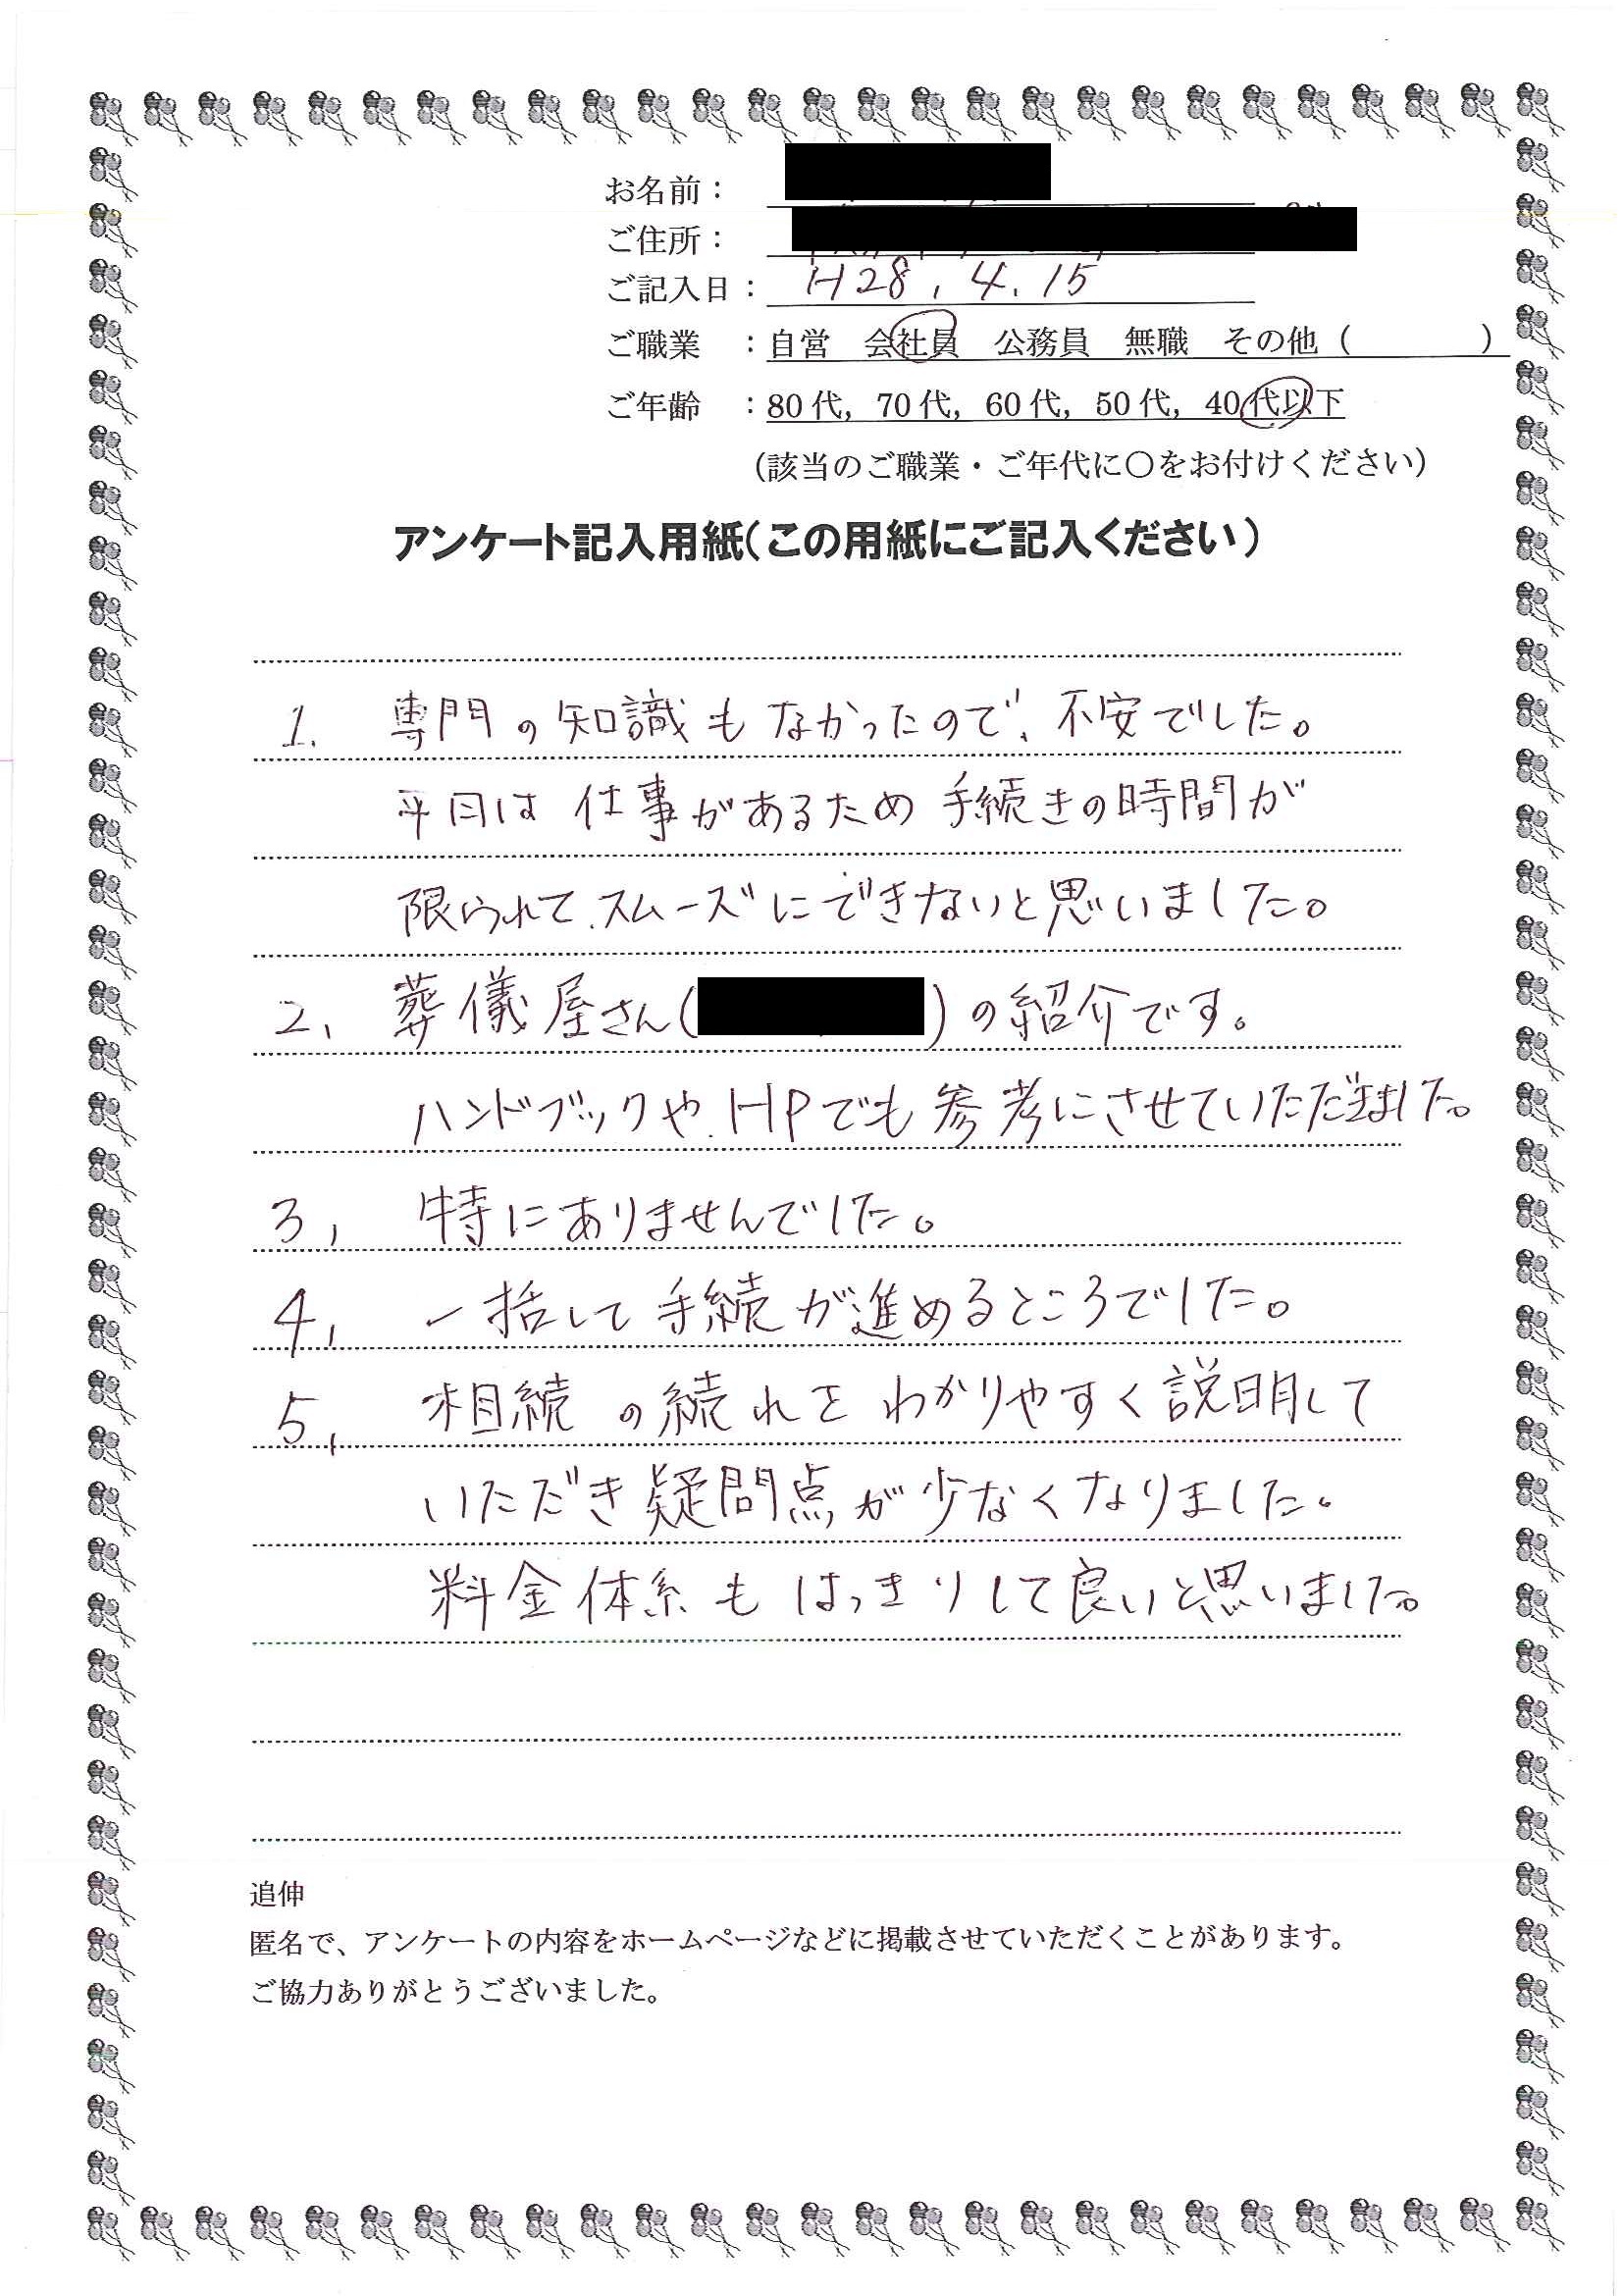 お名前：
ご住所：
ご記入日： H28.4.15
ご職業 ：自営 会社員 公務員 無職 その他（ ）
ご年齢 ：80代，70代，60代，50代，40代以下
（該当のご職業・ご年代に〇をお付けください）
アンケート記入用紙（この用紙にご記入ください）
1. 専門の知識もなかったので、不安でした。
平日は仕事があるため手続きの時間が
限られて、スムーズにできないと思いました。
2, 葬儀屋さん( )の紹介です。
ハンドブックや、HPでも参考にさせていただきました。
3, 特にありませんでした。
4, 一括して手続が進めるところでした。
5, 相続の続れをわかりやすく説明して
いただき疑問点が少なくなりました。
料金体系もはっきりして良いと思いました。
追伸
匿名で、アンケートの内容をホームページなどに掲載させていただくことがあります。
ご協力ありがとうございました。